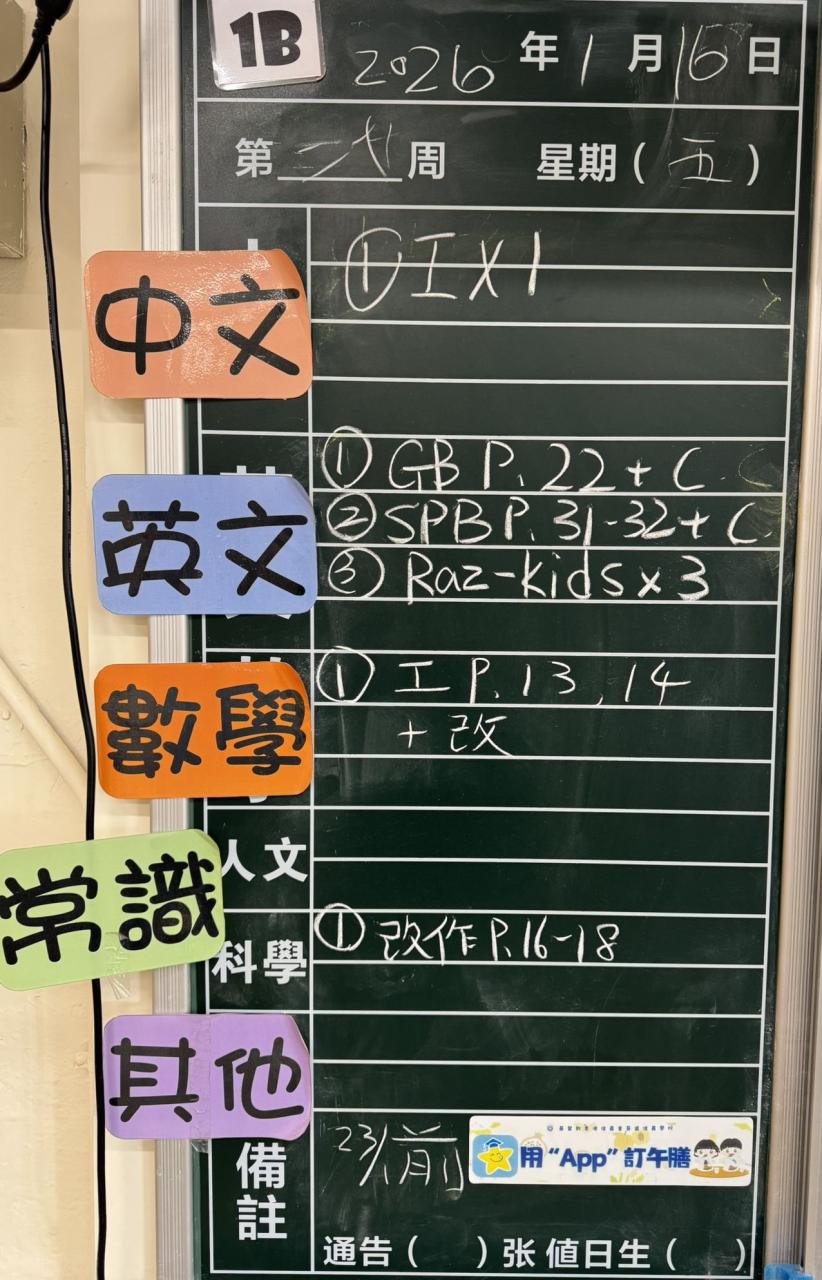 1B
2026年1月16日
第 周 星期(五)
中文
① 工 x 1
英文
① GB P. 22 + C
② SPB P. 31-32 + C
③ Raz-kids x 3
數學
① 工 P. 13, 14
+ 改
常識
人文
科學
① 改作 P. 16-18
其他
備註
23/1前
用“App”訂午膳
通告( )张 值日生( )